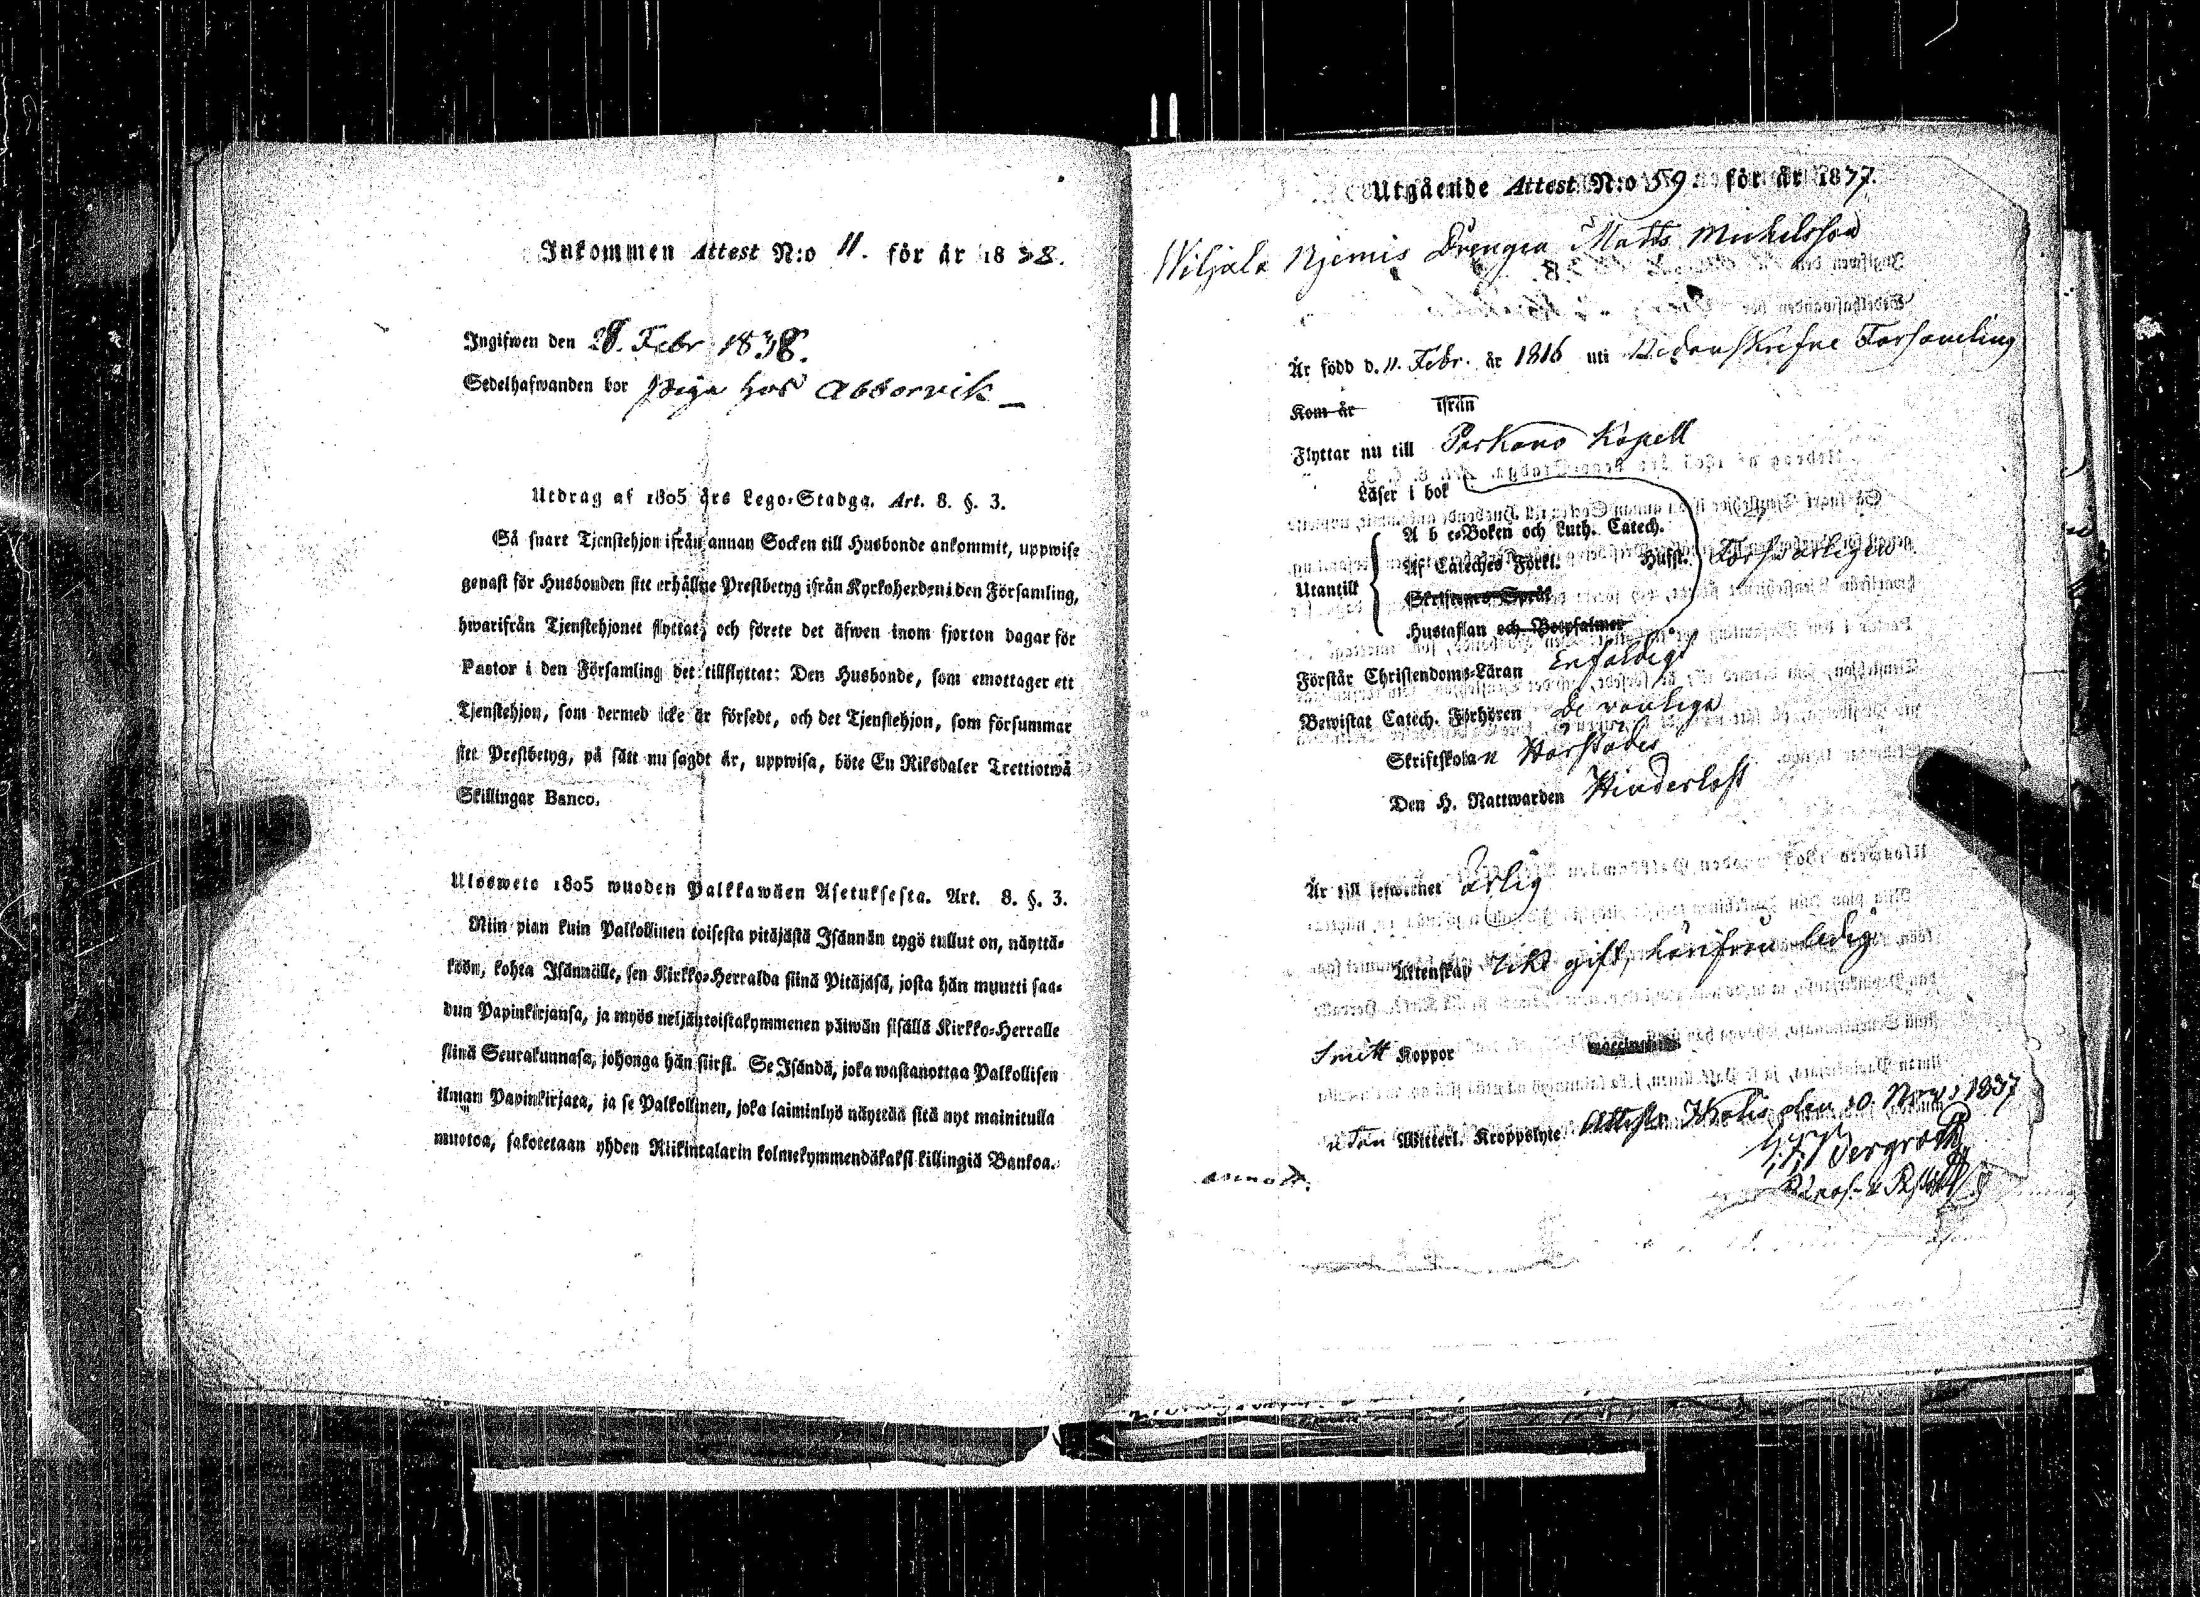 Inkommen Attest N:o 11. för år 1838.
Ingifwen den 28. Febr 1838.
Sedelhafwanden bor Piga hos Abborvik
Utdrag af 1805 års Lego-Stadga. Art. 8. §. 3.
Så snart Tjenstehjon ifrån annan Socken till Husbonde ankommit, uppwise
genast för Husbonden sitt erhållne Prestbetyg ifrån Kyrkoherden i den Församling,
hwarifrån Tjenstehjonet flyttat, och förete det äfwen inom fjorton dagar för
Pastor i den Församling det tillflyttat: Den Husbonde, som emottager ett
Tjenstehjon, som dermed icke är försedt, och det Tjenstehjon, som försummar
sitt Prestbetyg, på sätt nu sagdt är, uppwisa, böte En Riksdaler Trettiotwå
Skillingar Banco.
Ulosweto 1805 wuoden Palkkawäen Asetuksesta. Art. 8. §. 3.
Niin pian kuin Palkollinen toisesta pitäjästä Isännän tygö tullut on, näyttä-
köön, kohta Isännälle, sen Kirkko-Herralda siinä Pitäjäsä, josta hän muutti saa-
dun Papinkirjansa, ja myös neljäntoistakymmenen päiwän sisällä Kirkko-Herralle
siinä Seurakunnasa, johonga hän siirsi. Se Isändä, joka wastanottaa Palkollisen
ilman Papinkirjata, ja se Palkollinen, joka laiminlyö näyttää sitä nyt mainitulla
muotoa, sakotetaan yhden Riikintalarin kolmekymmendäkaksi killingiä Bankoa.
Utgående Attest N:o 59 för år 1837.
Wiljala Njemis Drengen Matts Michelsson
Är född d. 11. Febr. år 1816 uti Nedanskrifne Församling
Kom år ifrån
Flyttar nu till Parkano Kapell
Läser i bok
A b c-Boken och Luth. Catech.
Utantill Af Cateches Förkl. Husst. Försvarligen
Skriftenes Språk
Hustaflan och Botpsalmer
Förstår Christendoms-Läran Enfaldigt
Bewistat Catech. Förhören De vanliga
Skriftskolan Wårstådes
Den H. Nattwarden Hinderlöst
Är till lefwernet ärlig
Äktenskap icke gift, härifrån ledig
Smitt Koppor
utan Witterl. Kroppslyte Attester Ikalis den 20. Nov. 1837
Bergroth